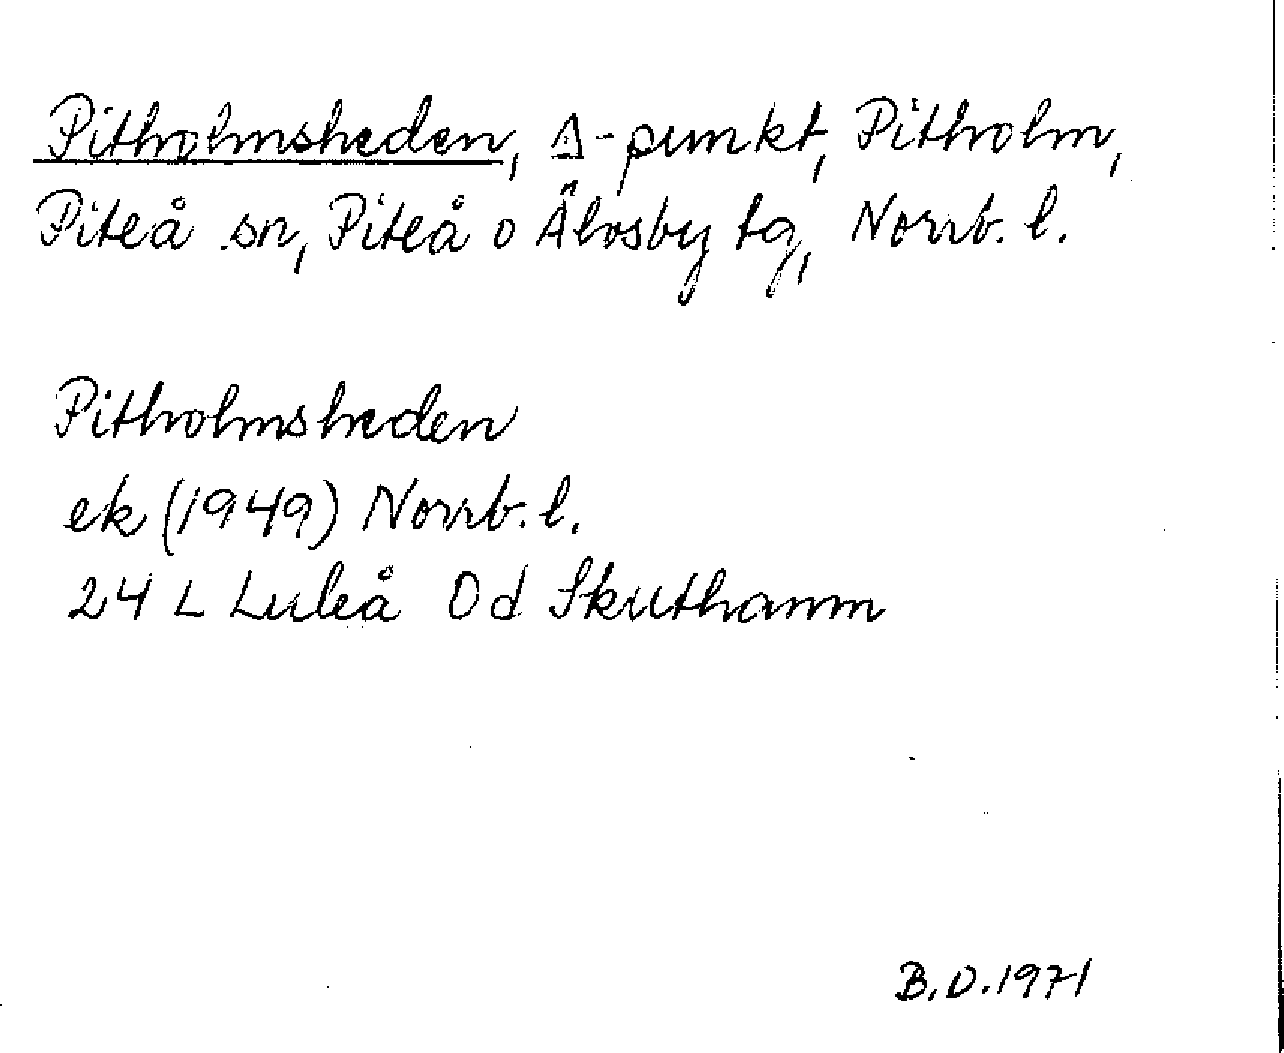 Pitholmsheden, Δ-punkt, Pitholm,
Piteå sn, Piteå o Älvsby tg, Norrb. l.
Pitholmsheden
ek (1949) Norrb. l.
24 L Luleå Od Skuthamn
B.D. 1971